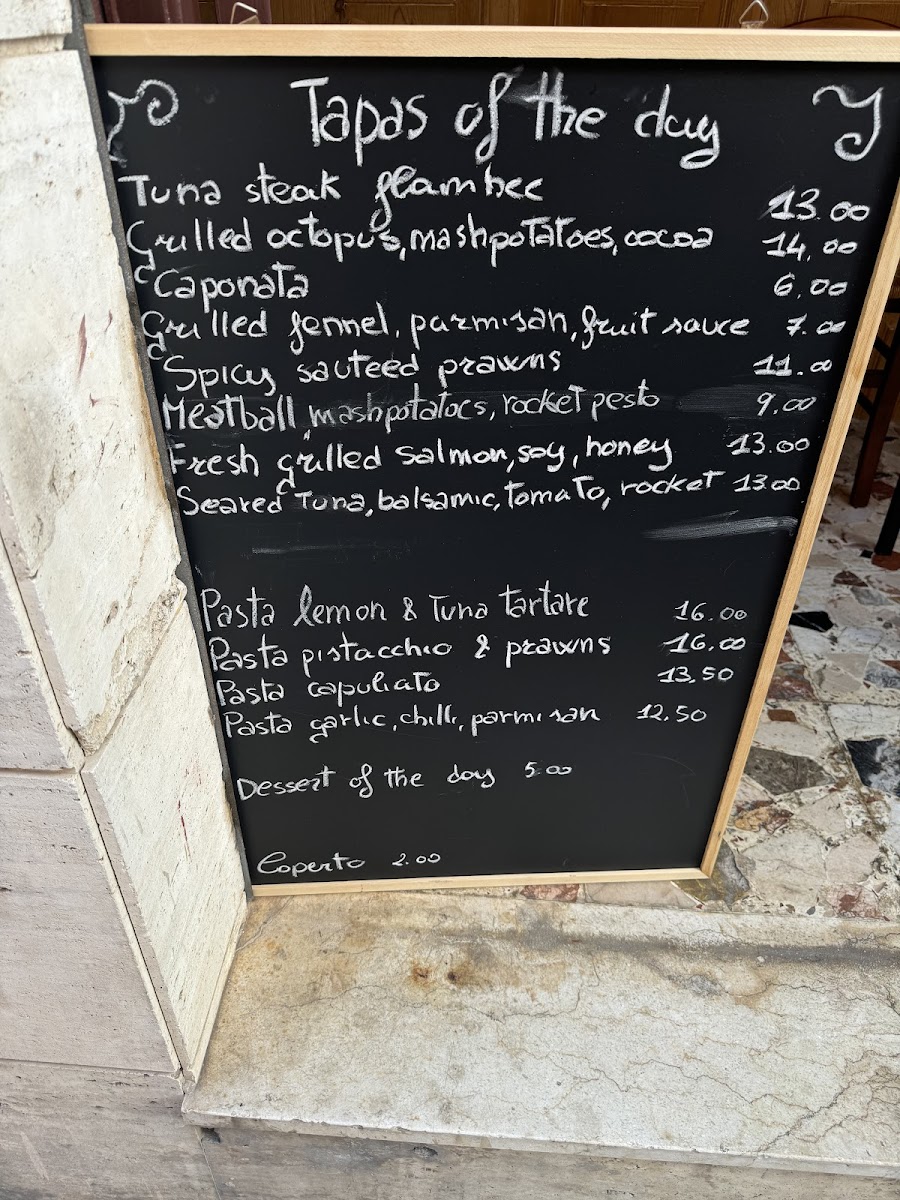 Tapas of the day
Tuna steak flambee 13.00
Grilled octopus, mashpotatoes, cocoa 14.00
Caponata 6.00
Grilled fennel, parmisan, fruit sauce 7.00
Spicy sauteed prawns 11.00
Meatball, mashpotatoes, rocket pesto 9.00
Fresh grilled salmon, soy, honey 13.00
Seared Tuna, balsamic, tomato, rocket 13.00
Pasta lemon & Tuna tartare 16.00
Pasta pistacchio & prawns 16.00
Pasta capuliato 13,50
Pasta garlic, chilli, parmisan 12.50
Dessert of the day 5.00
Coperto 2.00